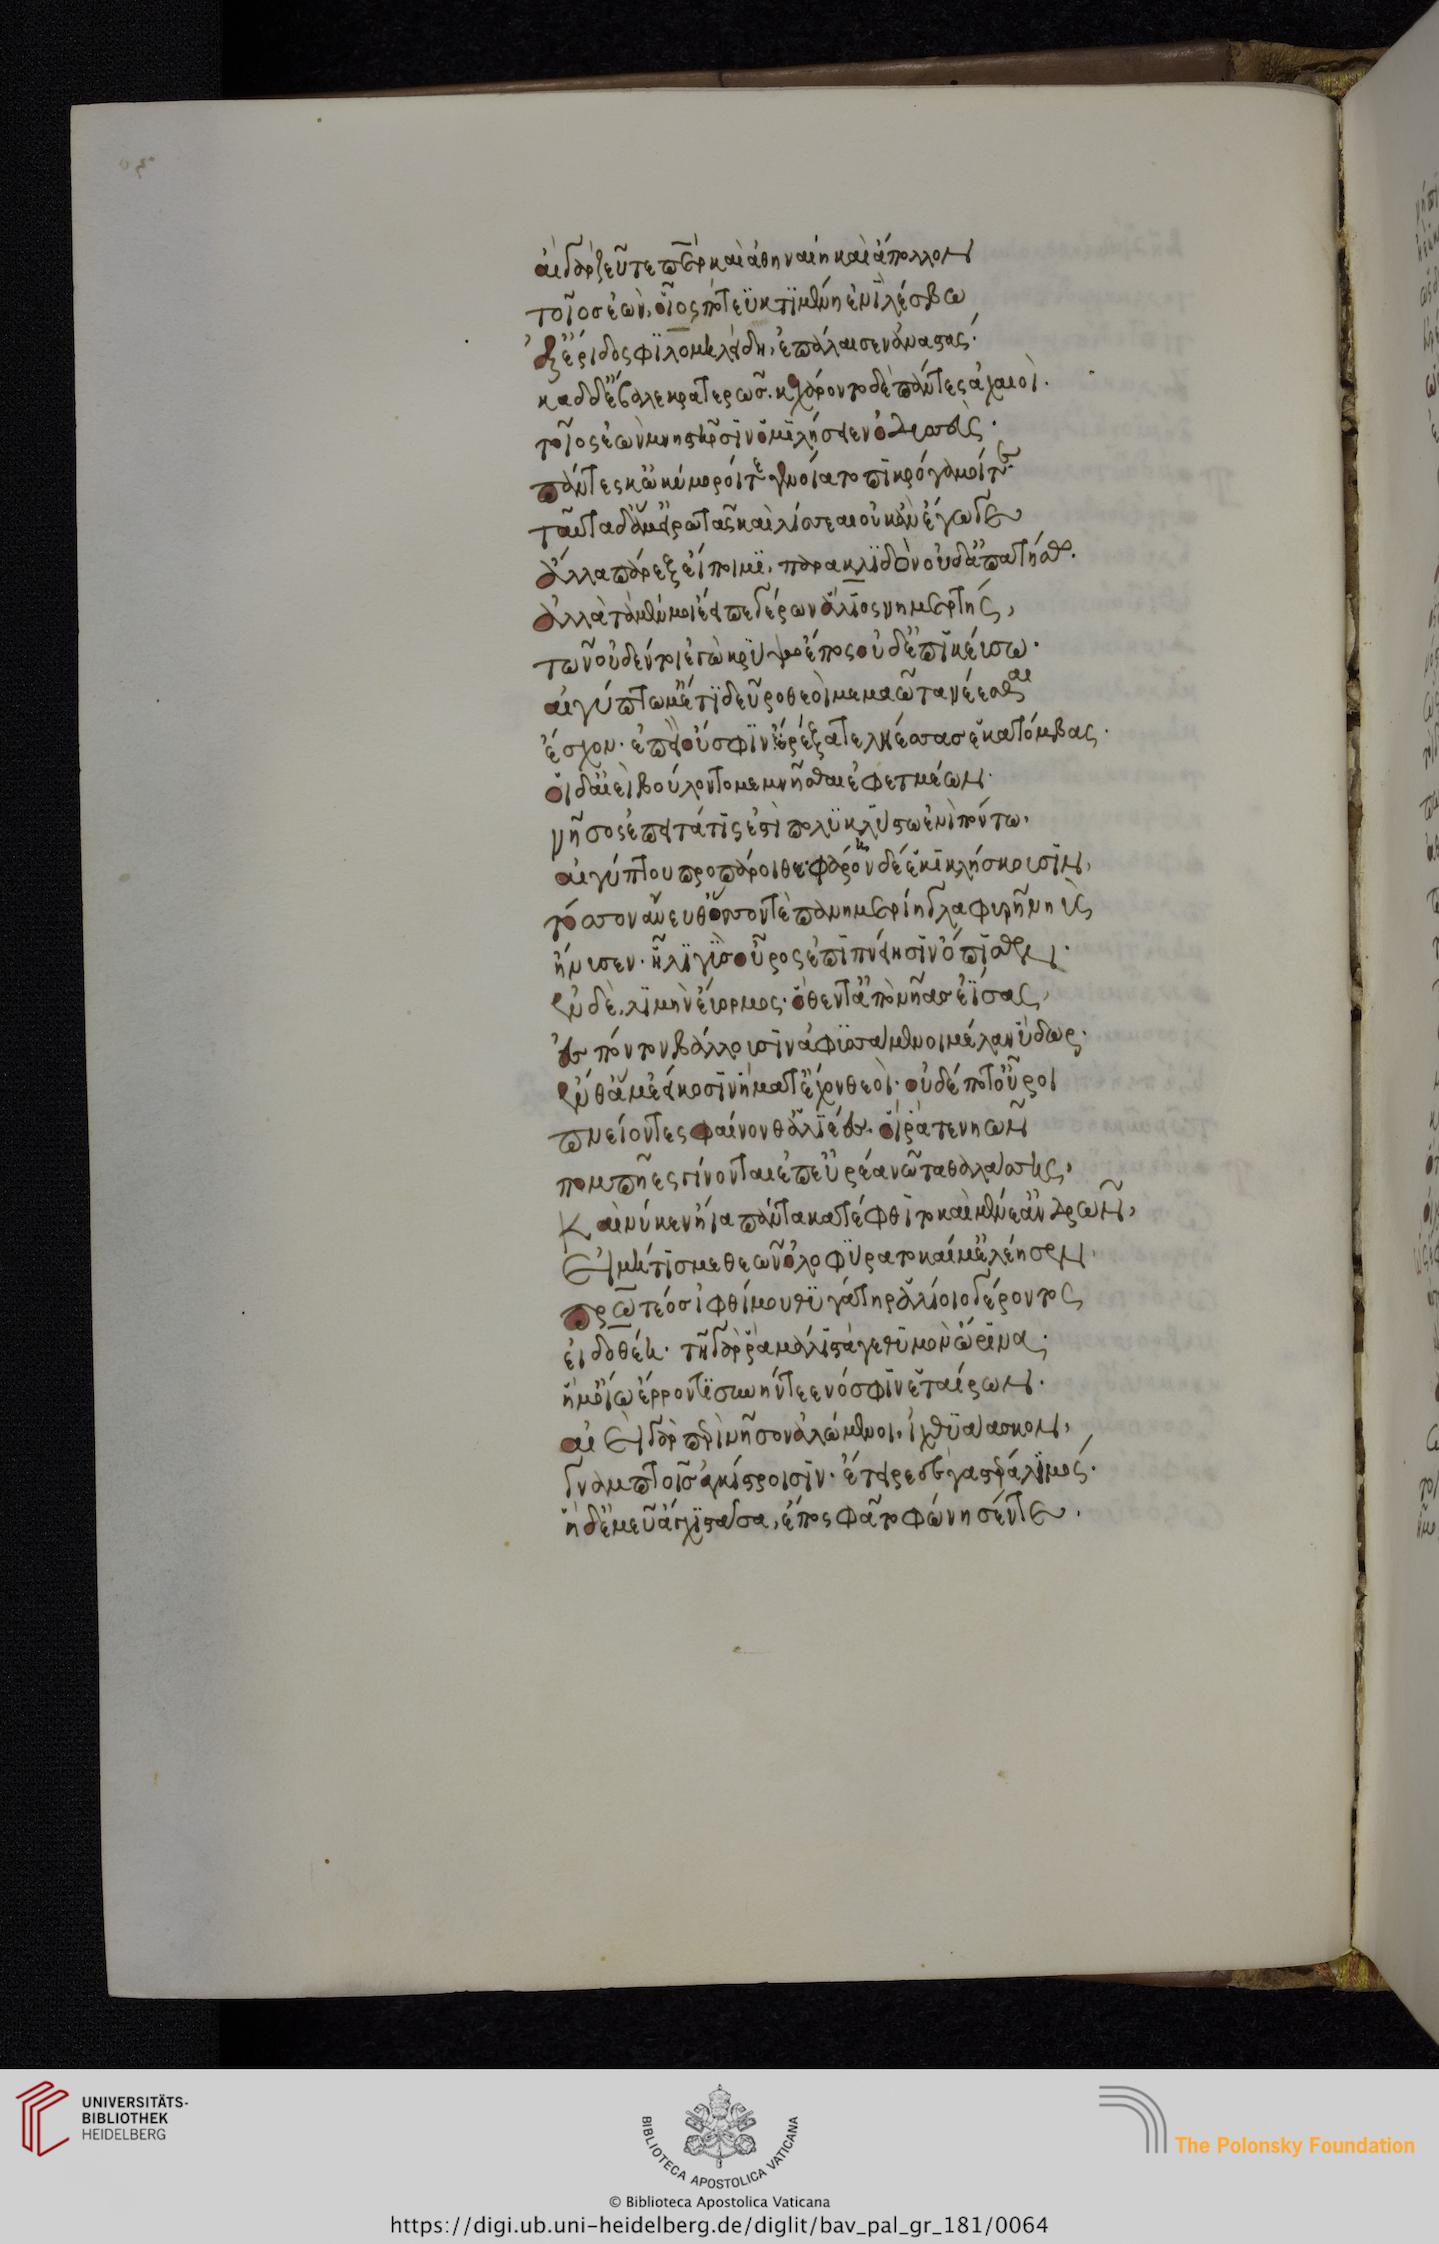 αἲ γὰρ ζεῦ τε πάτερ καὶ ἀθηναίη καὶ ἄπολλον
τοῖος ἐὼν, οἷός ποτ' ἐϋκτιμένη ἐνὶ λέσβω
ἐξ ἔριδος φιλομηλείδη, ἐπάλαισεν ἀναστάς·
καδδ' ἔβαλε κρατερῶς. κεχάροντο δὲ πάντες ἀχαιοί.
τοῖος ἐὼν μνηστῆρσιν ὁμιλήσειεν ὀδυσσεύς·
πάντες κ' ὠκύμοροί τε γενοίατο πικρόγαμοί τε
ταῦτα δ' ἅ μ' εἰρωτᾶς καὶ λίσσεαι οὐκ ἂν ἔγωγε
ἄλλα παρὲξ εἴποιμι, παρακλιδὸν οὐδ' ἀπατήσω.
ἀλλὰ τὰ μέν μοι ἔειπε γέρων ἅλιος νημερτής,
τῶν οὐδέν τοι ἐγὼ κρύψω ἔπος οὐδ' ἐπικεύσω.
αἰγύπτω μ' ἔτι δεῦρο θεοὶ μεμαῶτα νέεσθαι
ἔσχον· ἐπεὶ οὔ σφιν ἔρεξα τεληέσσας ἑκατόμβας.
οἱ δ' αἰεὶ βούλοντο μεμνῆσθαι ἐφετμέων.
νῆσος ἔπειτά τις ἐστὶ πολυκλύστω ἐνὶ πόντω,
αἰγύπτου προπάροιθε· φάρον δέ ἑ κικλήσκουσιν,
τόσσον ἄνευθ' ὅσσον τε πανημερίη γλαφυρὴ νηῦς
ἤνυσεν· ᾗ λιγὺς οὖρος ἐπιπνείησιν ὄπισθεν.
ἐν δὲ λιμὴν εὔορμος· ὅθεν τ' ἀπὸ νῆας ἐΐσας,
ἐς πόντον βάλλουσιν ἀφυσσάμενοι μέλαν ὕδωρ·
ἔνθά μ' ἐείκοσιν ἤματ' ἔχον θεοί· οὐδέ ποτ' οὖροι
πνείοντες φαίνονθ' ἁλιέες. οἵ ῥά τε νηῶν
πομπῆες γίνονται ἐπ' εὐρέα νῶτα θαλάσσης,
καί νύ κεν ἤϊα πάντα κατέφθιτο καὶ μένε' ἀνδρῶν,
εἰ μή τίς με θεῶν ὀλοφύρατο καί μ' ἐλέησεν.
πρωτέος ἰφθίμου θυγάτηρ ἁλίοιο γέροντος
εἰδοθέη· τῆ γάρ ῥα μάλιστά γε θυμὸν ὤρινα·
ἥ μ' οἴω ἔρροντι συνήντεε νόσφιν ἑταίρων.
αἰεὶ γὰρ περὶ νῆσον ἀλώμενοι, ἰχθυάασκον,
γναμπτοῖς ἀγκίστροισιν· ἔτειρε δὲ γαστέρα λιμός.
ἡ δέ μευ ἄγχι στᾶσα, ἔπος φάτο φώνησέν τε.
UNIVERSITÄTS-
BIBLIOTHEK
HEIDELBERG
BIBLIOTECA APOSTOLICA VATICANA
The Polonsky Foundation
© Biblioteca Apostolica Vaticana
https://digi.ub.uni-heidelberg.de/diglit/bav_pal_gr_181/0064